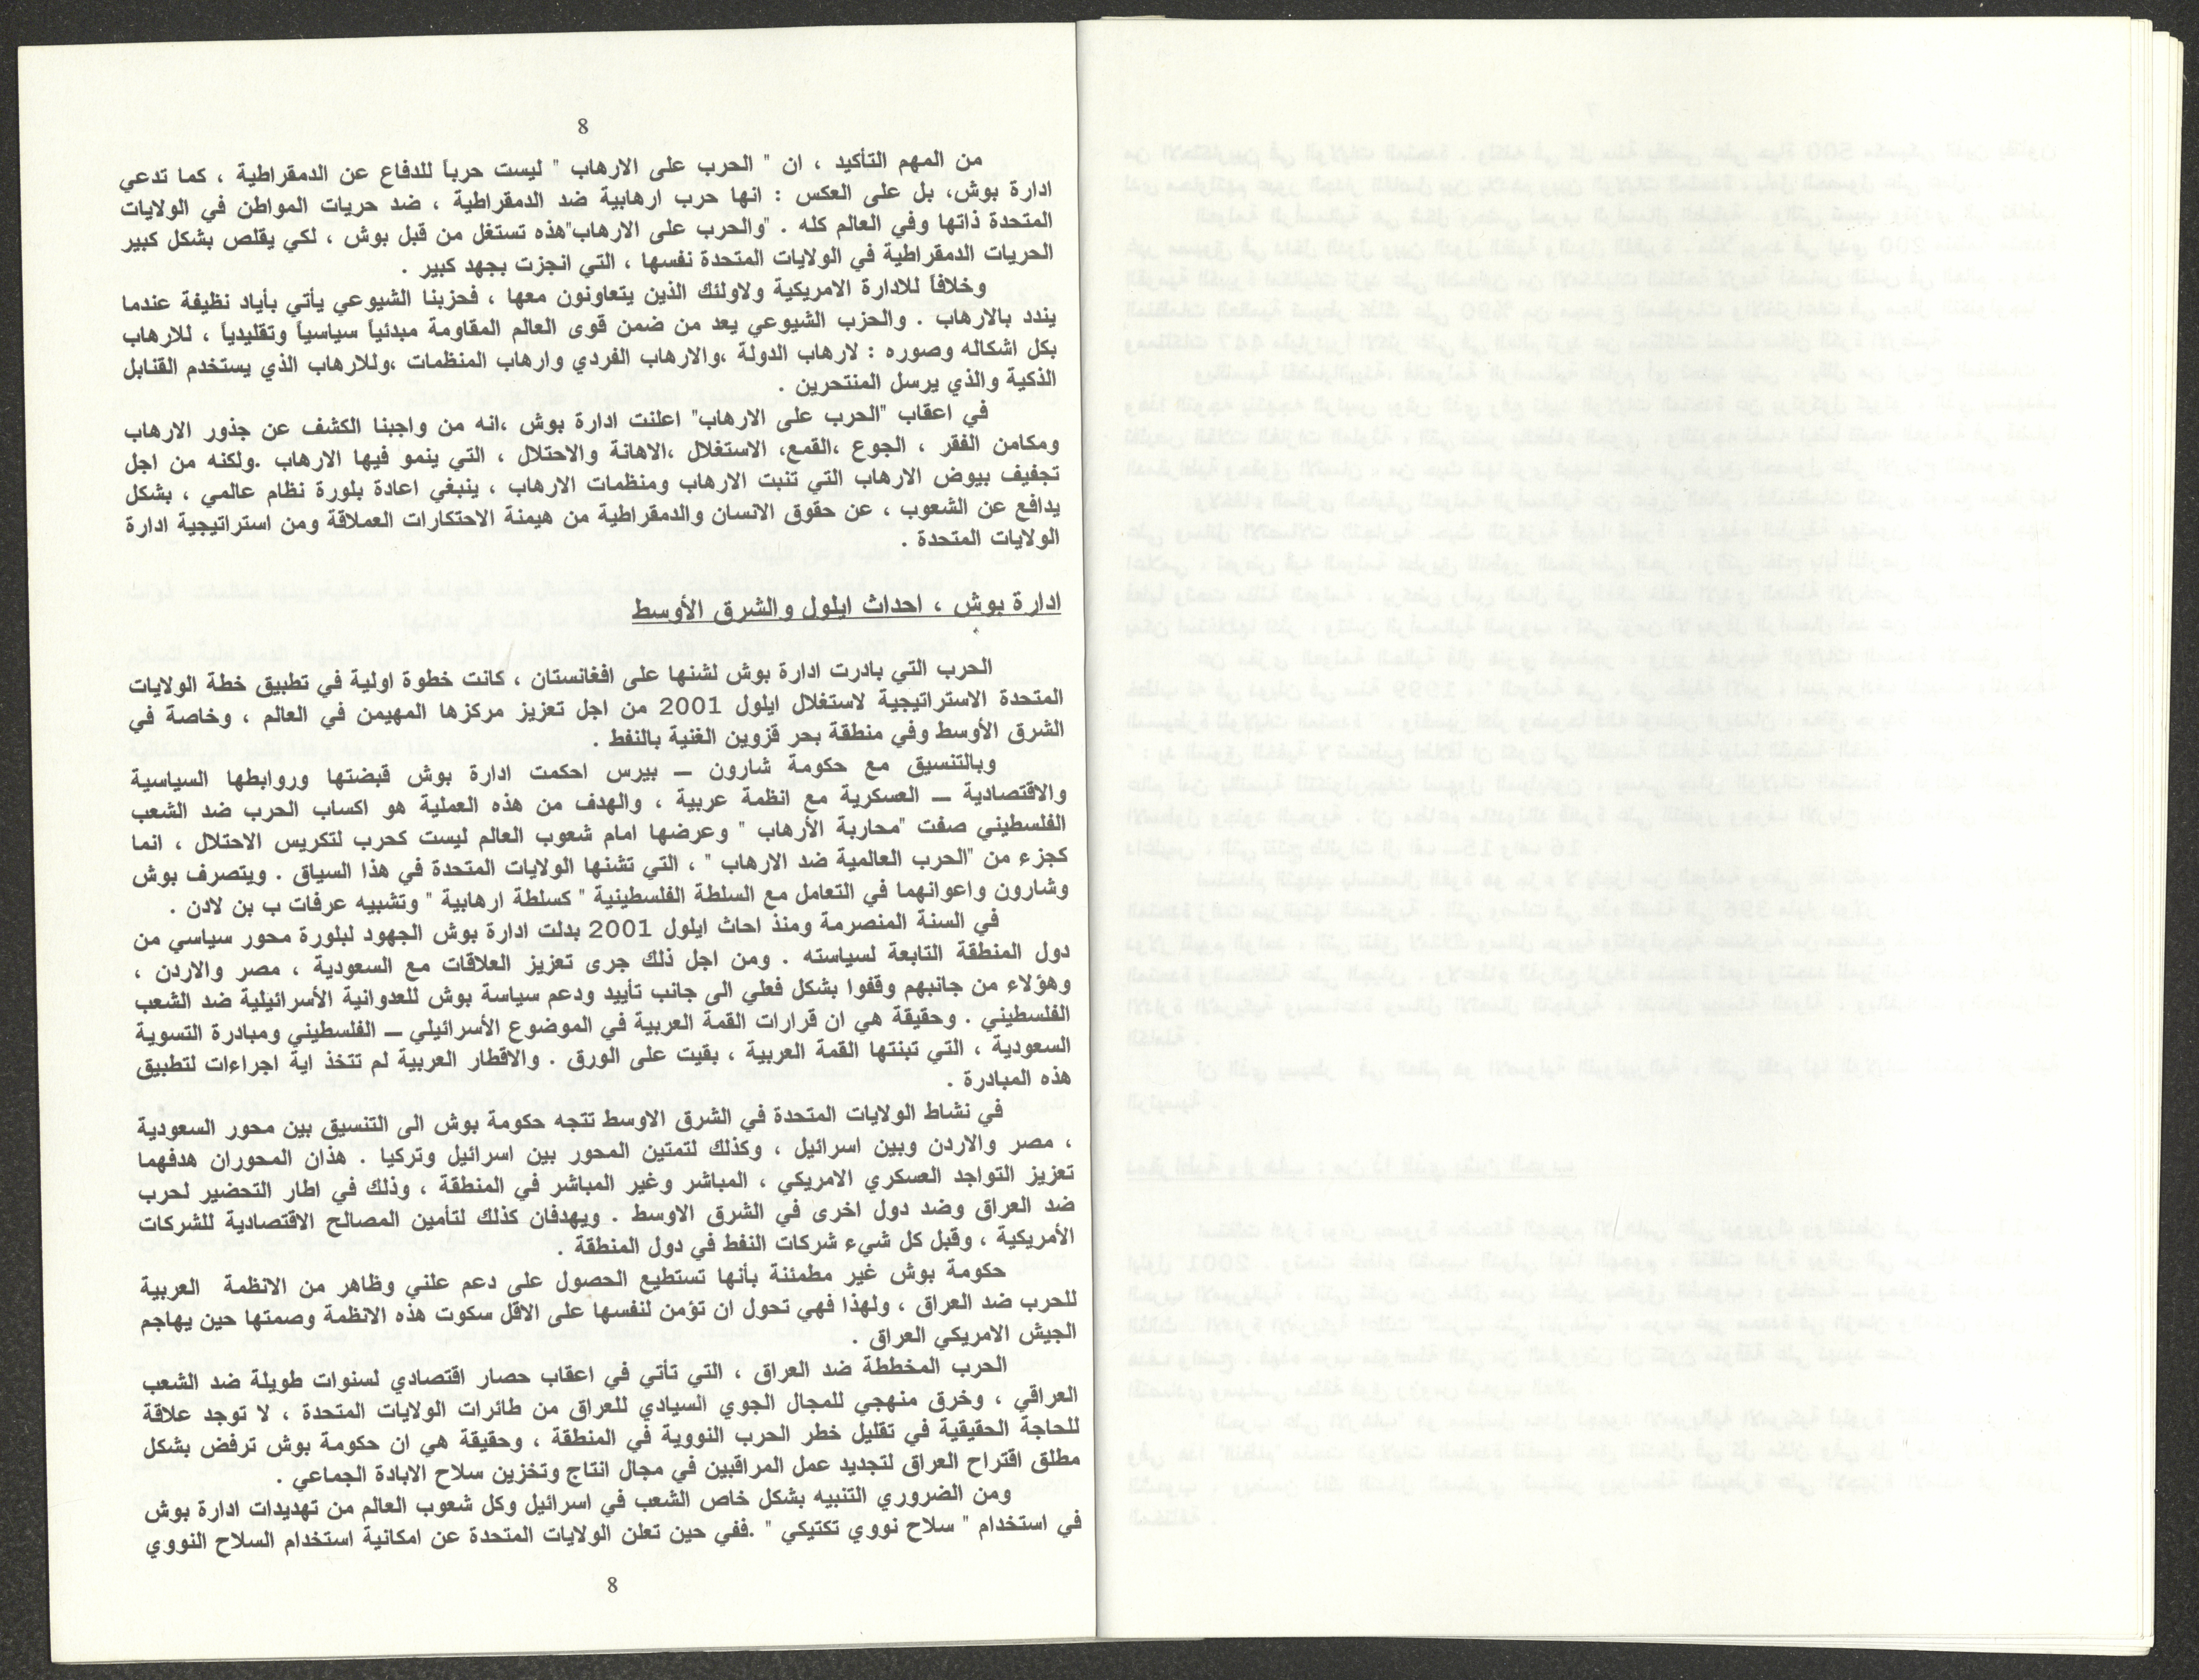 8
من المهم التأكيد ، ان " الحرب على الارهاب " ليست حرباً للدفاع عن الدمقراطية ، كما تدعي
ادارة بوش، بل على العكس : انها حرب ارهابية ضد الدمقراطية ، ضد حريات المواطن في الولايات
المتحدة ذاتها وفي العالم كله . "والحرب على الارهاب"هذه تستغل من قبل بوش ، لكي يقلص بشكل كبير
الحريات الدمقراطية في الولايات المتحدة نفسها ، التي انجزت بجهد كبير .
وخلافاً للادارة الامريكية ولاولئك الذين يتعاونون معها ، فحزبنا الشيوعي يأتي بأياد نظيفة عندما
يندد بالارهاب . والحزب الشيوعي يعد من ضمن قوى العالم المقاومة مبدئياً سياسياً وتقليدياً ، للارهاب
بكل اشكاله وصوره : لارهاب الدولة ،والارهاب الفردي وارهاب المنظمات ،وللارهاب الذي يستخدم القنابل
الذكية والذي يرسل المنتحرين .
في اعقاب "الحرب على الارهاب" اعلنت ادارة بوش ،انه من واجبنا الكشف عن جذور الارهاب
ومكامن الفقر ، الجوع ،القمع، الاستغلال ،الاهانة والاحتلال ، التي ينمو فيها الارهاب .ولكنه من اجل
تجفيف بيوض الارهاب التي تنبت الارهاب ومنظمات الارهاب ، ينبغي اعادة بلورة نظام عالمي ، بشكل
يدافع عن الشعوب ، عن حقوق الانسان والدمقراطية من هيمنة الاحتكارات العملاقة ومن استراتيجية ادارة
الولايات المتحدة .
ادارة بوش ، احداث ايلول والشرق الأوسط
الحرب التي بادرت ادارة بوش لشنها على افغانستان ، كانت خطوة اولية في تطبيق خطة الولايات
المتحدة الاستراتيجية لاستغلال ايلول 2001 من اجل تعزيز مركزها المهيمن في العالم ، وخاصة في
الشرق الأوسط وفي منطقة بحر قزوين الغنية بالنفط .
وبالتنسيق مع حكومة شارون – بيرس احكمت ادارة بوش قبضتها وروابطها السياسية
والاقتصادية – العسكرية مع انظمة عربية ، والهدف من هذه العملية هو اكساب الحرب ضد الشعب
الفلسطيني صفت "محاربة الأرهاب " وعرضها امام شعوب العالم ليست كحرب لتكريس الاحتلال ، انما
كجزء من "الحرب العالمية ضد الارهاب " ، التي تشنها الولايات المتحدة في هذا السياق . ويتصرف بوش
وشارون واعوانهما في التعامل مع السلطة الفلسطينية " كسلطة ارهابية " وتشبيه عرفات ب بن لادن .
في السنة المنصرمة ومنذ احاث ايلول 2001 بدلت ادارة بوش الجهود لبلورة محور سياسي من
دول المنطقة التابعة لسياسته . ومن اجل ذلك جرى تعزيز العلاقات مع السعودية ، مصر والاردن ،
وهؤلاء من جانبهم وقفوا بشكل فعلي الى جانب تأييد ودعم سياسة بوش للعدوانية الأسرائيلية ضد الشعب
الفلسطيني . وحقيقة هي ان قرارات القمة العربية في الموضوع الأسرائيلي – الفلسطيني ومبادرة التسوية
السعودية ، التي تبنتها القمة العربية ، بقيت على الورق . والاقطار العربية لم تتخذ اية اجراءات لتطبيق
هذه المبادرة .
في نشاط الولايات المتحدة في الشرق الاوسط تتجه حكومة بوش الى التنسيق بين محور السعودية
، مصر والاردن وبين اسرائيل ، وكذلك لتمتين المحور بين اسرائيل وتركيا . هذان المحوران هدفهما
تعزيز التواجد العسكري الامريكي ، المباشر وغير المباشر في المنطقة ، وذلك في اطار التحضير لحرب
ضد العراق وضد دول اخرى في الشرق الاوسط . ويهدفان كذلك لتأمين المصالح الاقتصادية للشركات
الأمريكية ، وقبل كل شيء شركات النفط في دول المنطقة .
حكومة بوش غير مطمئنة بأنها تستطيع الحصول على دعم علني وظاهر من الانظمة العربية
للحرب ضد العراق ، ولهذا فهي تحول ان تؤمن لنفسها على الاقل سكوت هذه الانظمة وصمتها حين يهاجم
الجيش الامريكي العراق .
الحرب المخططة ضد العراق ، التي تأتي في اعقاب حصار اقتصادي لسنوات طويلة ضد الشعب
العراقي ، وخرق منهجي للمجال الجوي السيادي للعراق من طائرات الولايات المتحدة ، لا توجد علاقة
للحاجة الحقيقية في تقليل خطر الحرب النووية في المنطقة ، وحقيقة هي ان حكومة بوش ترفض بشكل
مطلق اقتراح العراق لتجديد عمل المراقبين في مجال انتاج وتخزين سلاح الابادة الجماعي .
ومن الضروري التنبيه بشكل خاص الشعب في اسرائيل وكل شعوب العالم من تهديدات ادارة بوش
في استخدام " سلاح نووي تكتيكي " .ففي حين تعلن الولايات المتحدة عن امكانية استخدام السلاح النووي
8